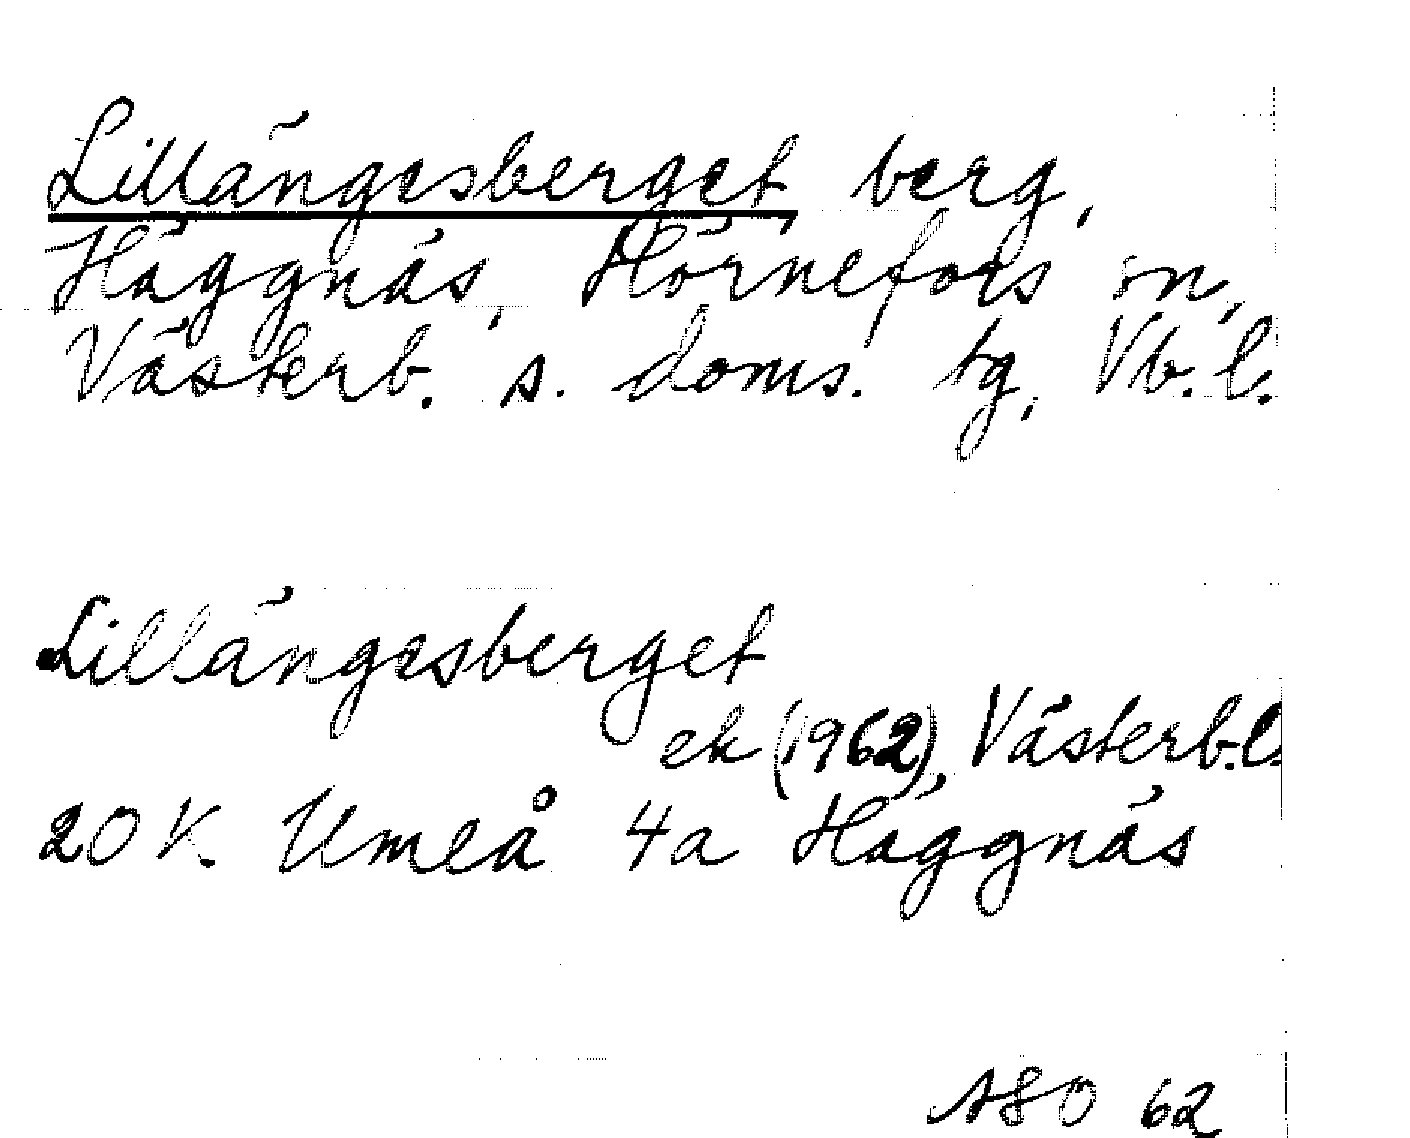 Lillängesberget berg,
Häggnäs, Hörnefors sn,
Västerb. s. doms. tg, Vb. l.
Lillängesberget
ek (1962), Västerb. l.
20 K Umeå 4a Häggnäs
ASO 62